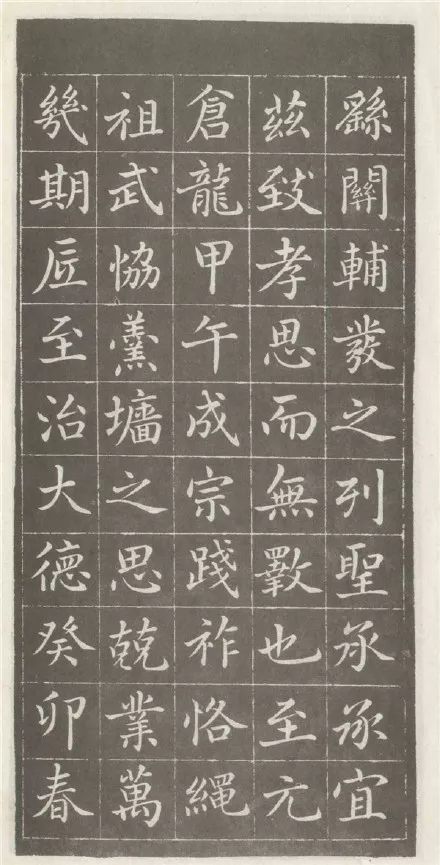 繇關輔發之列聖承承宜
茲致孝思而無斁也至元
倉龍甲午成宗踐祚恪繩
祖武恊羹墻之思兢業萬
幾期厎至治大德癸卯春